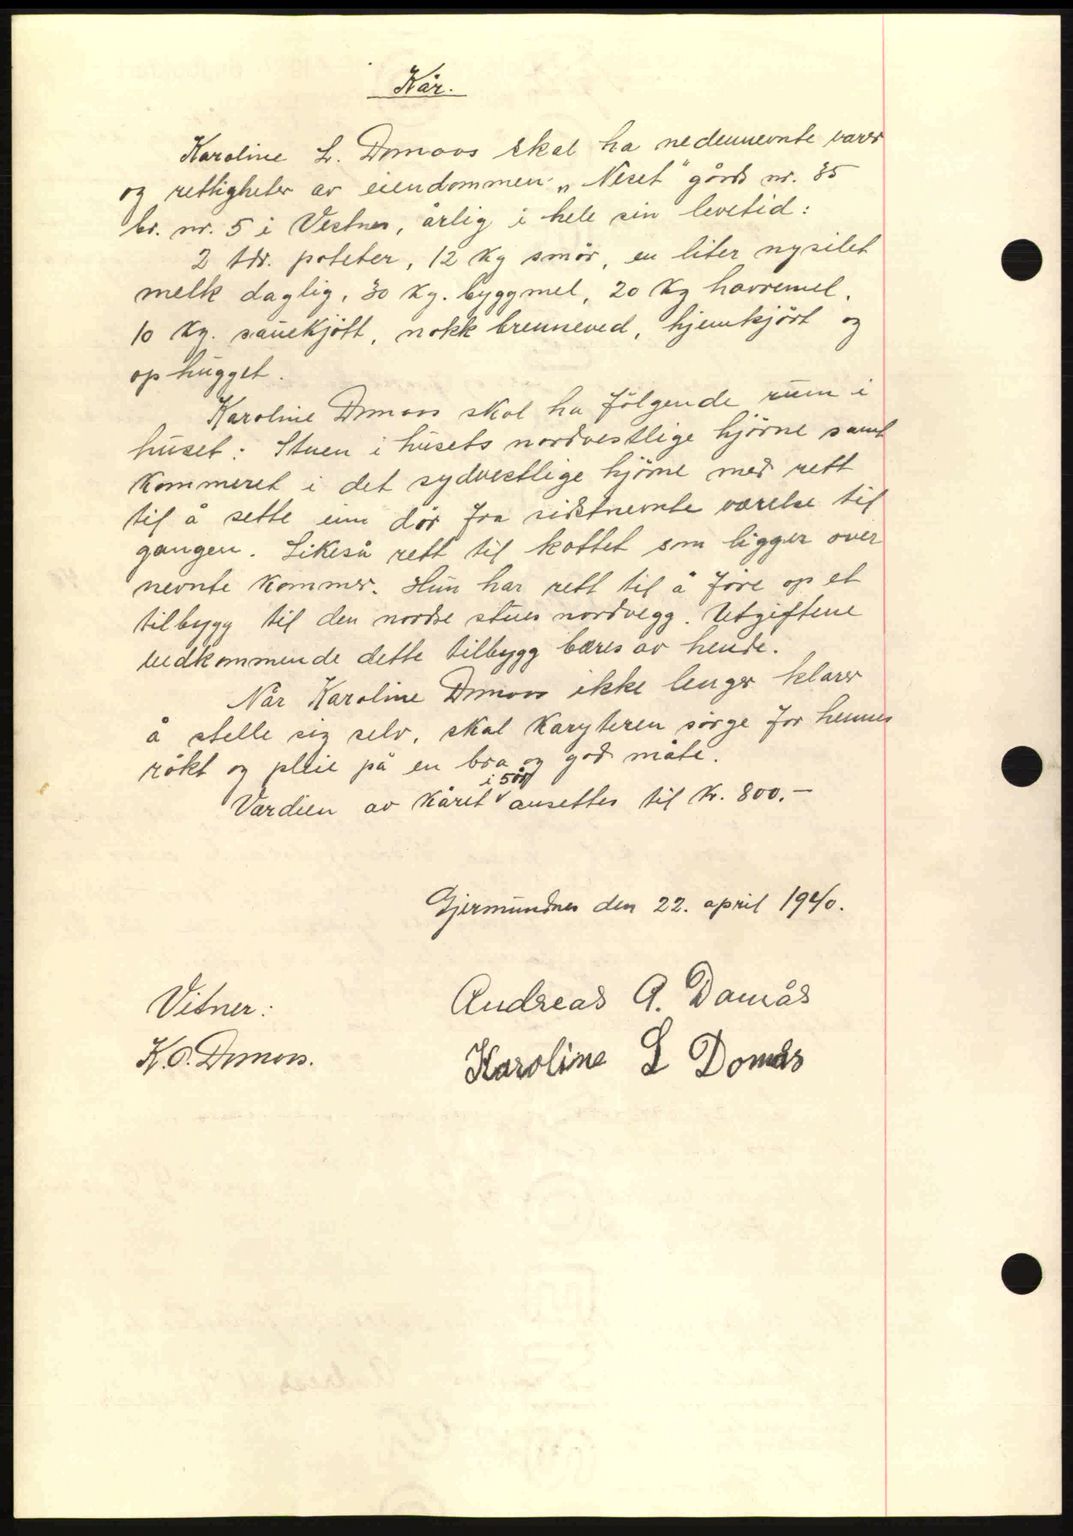 Kår.
Karoline L. Domaas skal ha nedennevnte varer
og rettigheter av eiendommen „Neset" gårds nr. 35
br. nr. 5 i Vestnes, årlig i hele sin levetid:
2 tdr. poteter, 12 kg smör, en liter nysilet
melk daglig, 30 kg. byggmel, 20 kg havremel,
10 kg. sauekjött, nokk brenneved, hjemkjört og
ophugget.
Karoline Domaas skal ha fölgende rum i
huset: Stuen i husets nordvestlige hjörne samt
kammeret i det sydvestlige hjörne med rett
til å sette inn dör fra sidstnevnte værelse til
gangen. Likeså rett til kottet som ligger over
nevnte kammer. Hun har rett til å före op et
tilbygg til den nordre stues nordvegg. Utgiftene
vedkommende dette tilbygg bæres av hende.
Når Karoline Domaas ikke lenger klarer
å stelle sig selv, skal kåryteren sörge for hennes
rökt og pleie på en bra og god måte.
i 5år
Værdien av kåret ansettes til kr. 800.-
Gjermundnes den 22. april 1940.
Vitner: Andreas A. Damås
K. O. Domaas. Karoline L Domås